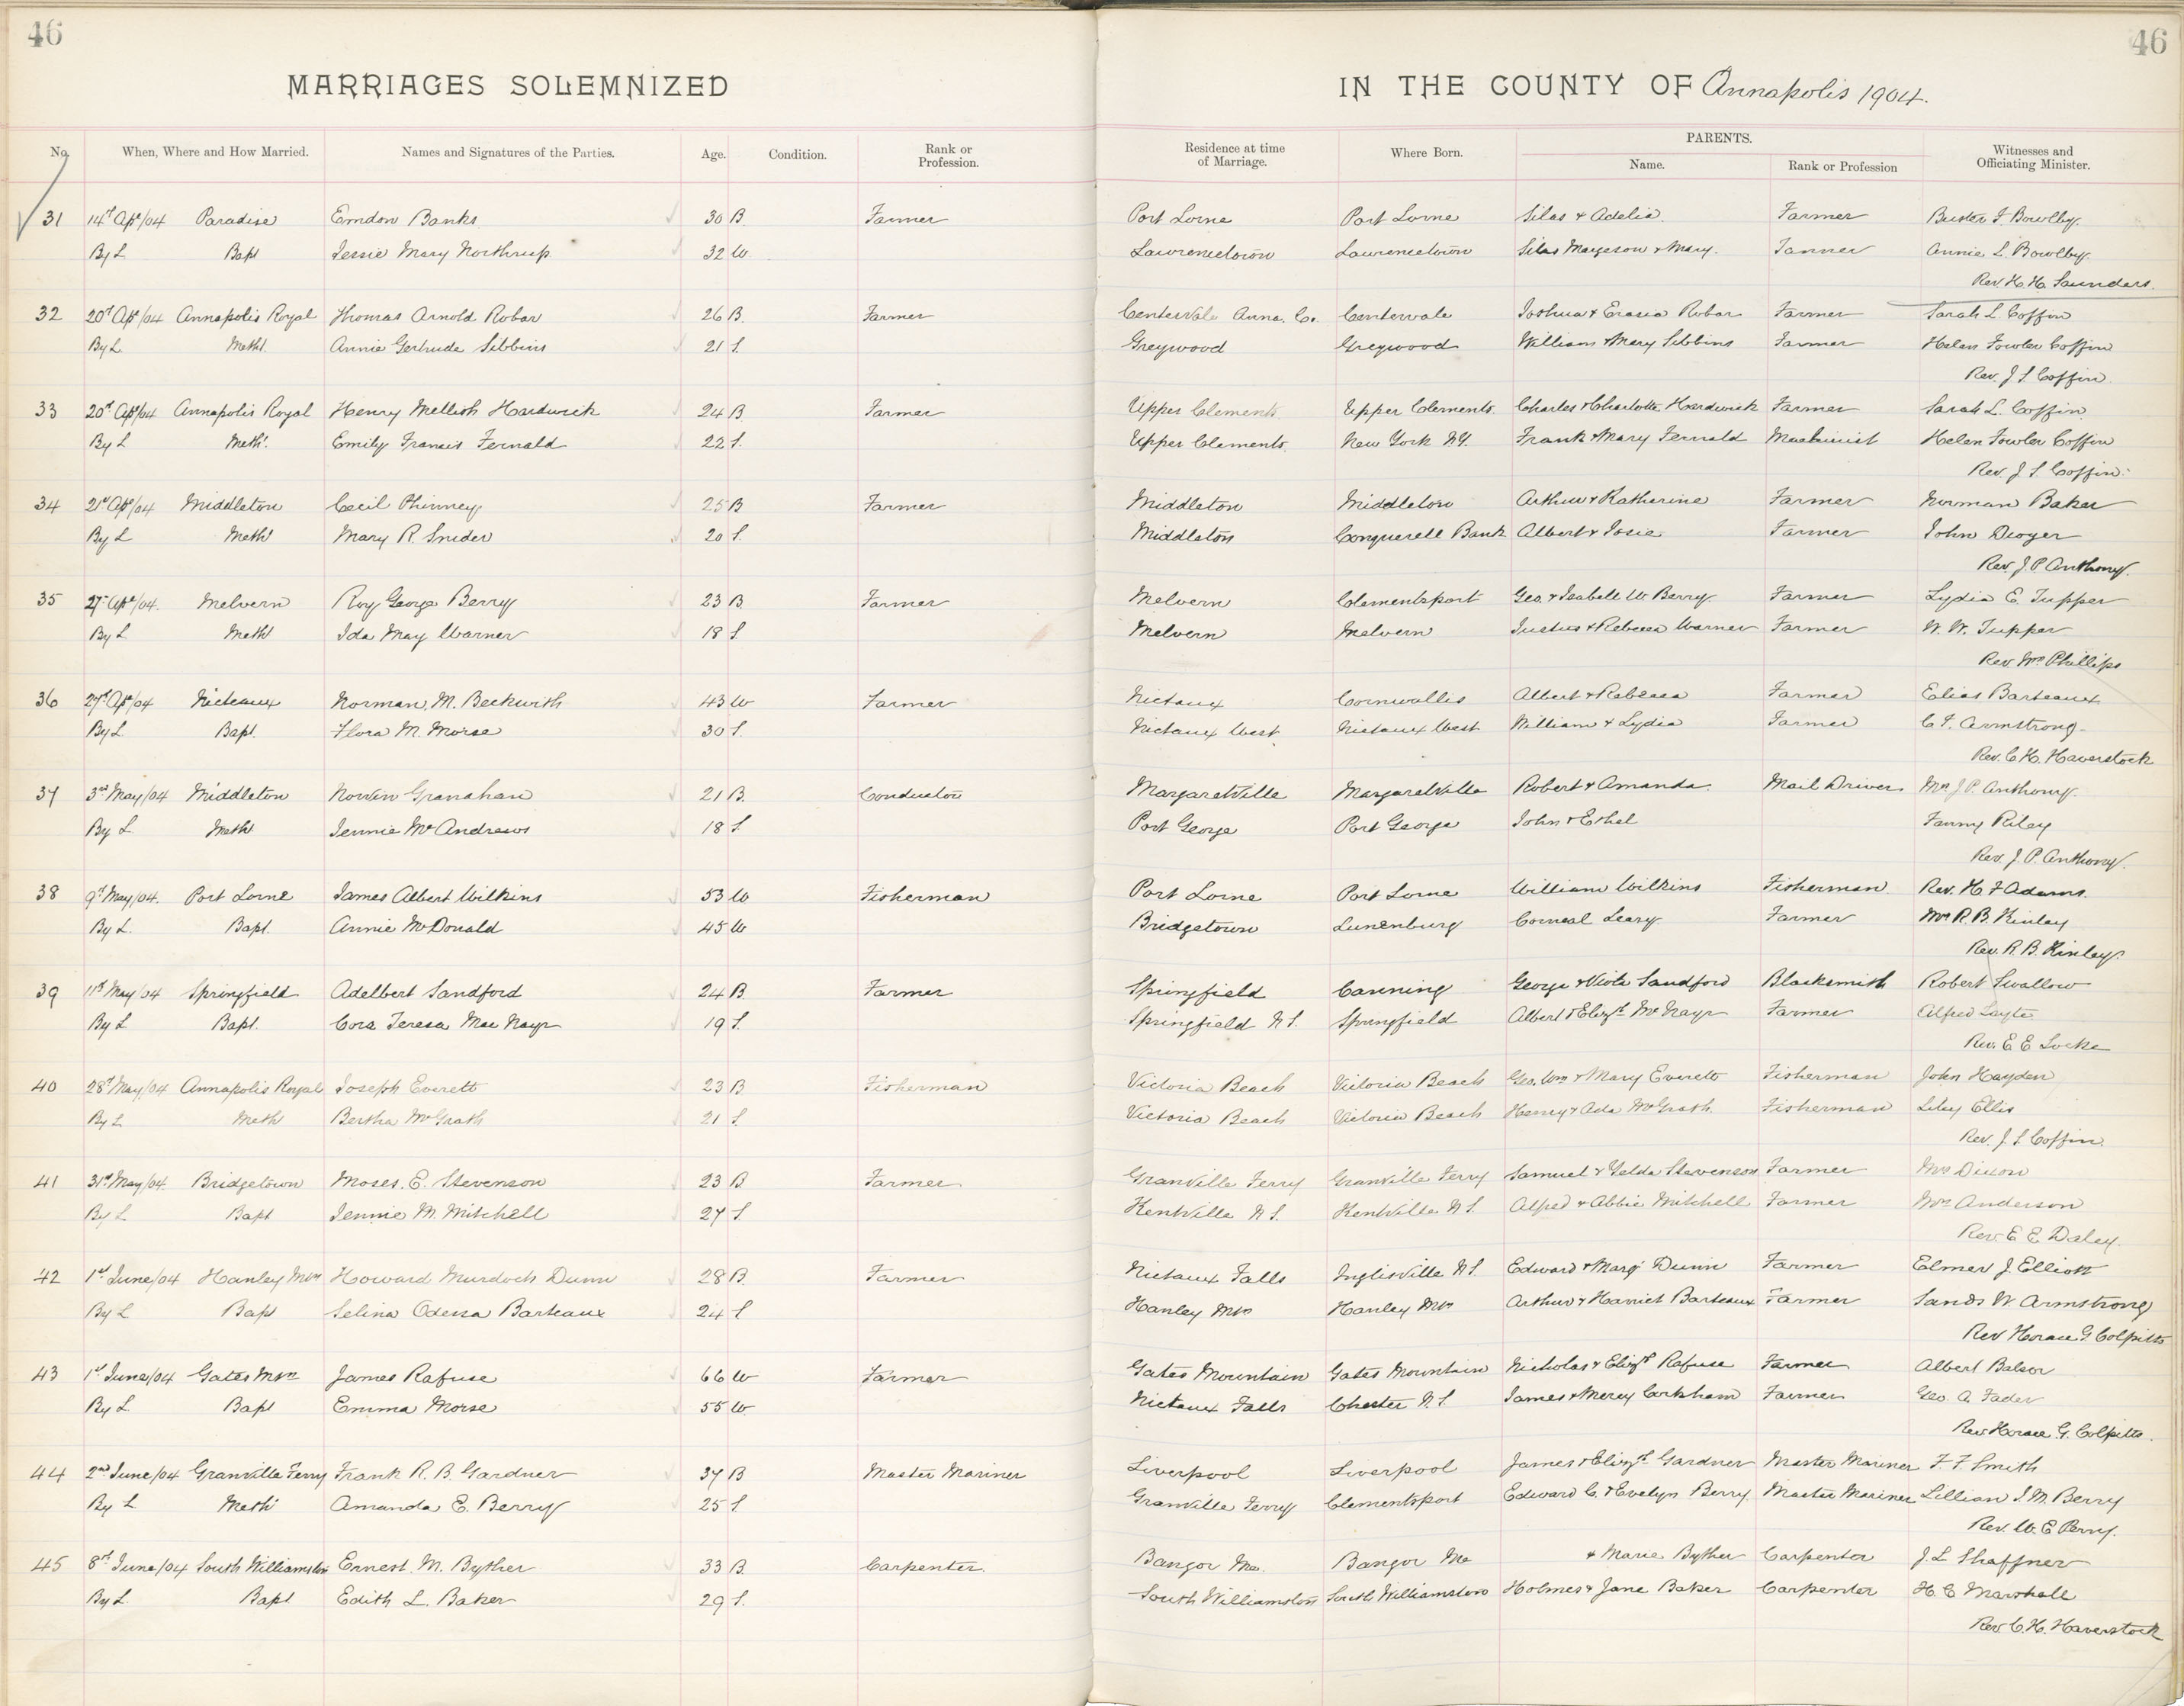 46
46
MARRIAGES SOLEMNIZED IN THE COUNTY OF Annapolis 1904.
No. When, Where and How Married. Names and Signatures of the Parties. Age. Condition. Rank or Profession. Residence at time of Marriage. Where Born. PARENTS. Name. Rank or Profession Witnesses and Officiating Minister.
31 14th Apl/04 Paradise Emdon Banks 30 B. Farmer Port Lorne Port Lorne Silas & Adelia. Farmer F. Bowlby.
By L Bapt Jessie Mary Northrup 32 W Lawrencetown Lawrencetown Silas Margeson & Mary. Farmer Annie L. Bowlby.
Rev. H. H. Saunders.
32 20th Apl/04 Annapolis Royal Thomas Arnold Robar 26 B. Farmer Centervale Anna. Co. Centervale Joshua & Robar Farmer Sarah L Coffin
By L Meth. Annie Gertrude Sibbins 21 S. Greywood Greywood William & Mary Sibbins Farmer Helen Fowler Coffin
Rev. J. S. Coffin.
33 20th Apl/04 Annapolis Royal Henry Mellish Hardwick 24 B. Farmer Upper Clements Upper Clements Charles & Charlotte Hardwick Farmer Sarah L. Coffin
By L Meth. Emily Francis Fernald 22 S. Upper Clements. New York N.Y. Frank & Mary Fernald Machinist Helen Fowler Coffin
Rev. J. S. Coffin.
34 21st Apl/04 Middleton Cecil Phinney 25 B Farmer Middleton Middleton Arthur & Katharine Farmer Norman Baker
By L Meth Mary R. Snider 20 S. Middleton Conquerell Bank Albert & Josie Farmer John
Rev. J. P. Anthony.
35 27th Apl/04. Melvern Roy George Berry 23 B. Farmer Melvern Clementsport Geo. & Isabell W. Berry. Farmer Lydia E. Tupper
By L Meth Ida May Warner 18 S Melvern Melvern Justus & Rebecca Warner Farmer W. W. Tupper
Rev Wm Phillips
36 27th Apl/04 Nicteaux Norman M. Beckwith 43 W Farmer Nictaux Cornwallis Albert & Rebecca Farmer Elias Barteaux
By L Bapt. Flora M. Morse 30 S. Nictaux West Nictaux West William & Lydia Farmer C. F. Armstrong.
Rev. C. H. Haverstock
37 3rd May/04 Middleton Norvin Granahan 21 B. Conductor Margaretville Margaretville Robert & Amanda. Mail Driver Mrs J. P. Anthony.
By L Meth Jennie McAndrews 18 S. Port George Port George John & Ethel Fanny Riley
Rev. J. P. Anthony.
38 9th May/04. Port Lorne James Albert Wilkins 53 W Fisherman Port Lorne Port Lorne William Wilkins Fisherman Rev. H. F Adams.
By L. Bapt. Annie McDonald 45 W Bridgetown Lunenburg Corneal Leary. Farmer Mrs R. B. Kinlay
Rev. R. B. Kinley.
39 11th May/04 Springfield Adelbert Sandford 24 B. Farmer Springfield Canning George & Viola Sandford Blacksmith Robert Swallow
By L Bapt. Cora Teresa MacNayr 19 S. Springfield N S. Springfield Albert & Elizth McNayr Farmer Alfred Layte
Rev. E E Locke
40 28th May/04 Annapolis Royal Joseph Everett 23 B. Fisherman Victoria Beach Victoria Beach Geo. Wm & Mary Everett Fisherman John Hayden
By L Meth Bertha McGrath 21 S. Victoria Beach Victoria Beach Henry & Ada McGrath. Fisherman Lily Ellis
Rev. J. S. Coffin.
41 31st May/04. Bridgetown Moses. E. Stevenson 23 B. Farmer Granville Ferry Granville Ferry Samuel & Zelda Stevenson Farmer Mrs Dixon
By L Bapt Jennie M. Mitchell 27 S. Kentville N S. Kentville N S. Alfred & Abbie Mitchell Farmer Mrs Anderson
Rev. E E Daley.
42 1st June/04 Hanley Mtn Howard Murdoch Dunn 28 B. Farmer Nictaux Falls Inglisville N S. Edward & Margt Dunn Farmer Elmer J. Elliott
By L Bapt Selina Odessa Barteaux 24 S Hanley Mtn Hanley Mtn Arthur & Harriet Barteaux Farmer Sands W. Armstrong
Rev Horace G Colpitts
43 1st June/04 Gates Mtn James Rafuse 66 W Farmer Gates Mountain Gates Mountain Nicholas & Elizth Rafuse Farmer Albert Balsor
By L Bapt Emma Morse 55 W. Nictaux Falls Chester N. S. James & Mercy Corkham Farmer Geo. A. Fader
Rev Horace G. Colpitts.
44 2nd June/04 Granville Ferry Frank R. B. Gardner 37 B Master Mariner Liverpool Liverpool James & Elizth Gardner Master Mariner F. F. Smith
By L Meth Amanda E. Berry 25 S. Granville Ferry Clementsport Edward C. & Evelyn Berry Master Mariner Lillian I. M. Berry
Rev. W. E Perry.
45 8th June/04 South Williamston Ernest. M. Byther 33 B. Carpenter. Bangor Me. Bangor Me & Marie Byther Carpenter J. L Shaffner
By L. Bapt Edith L. Baker 29 S. South Williamston South Williamston Holmes & Jane Baker Carpenter H. C Marshall
Rev C. H. Haverstock